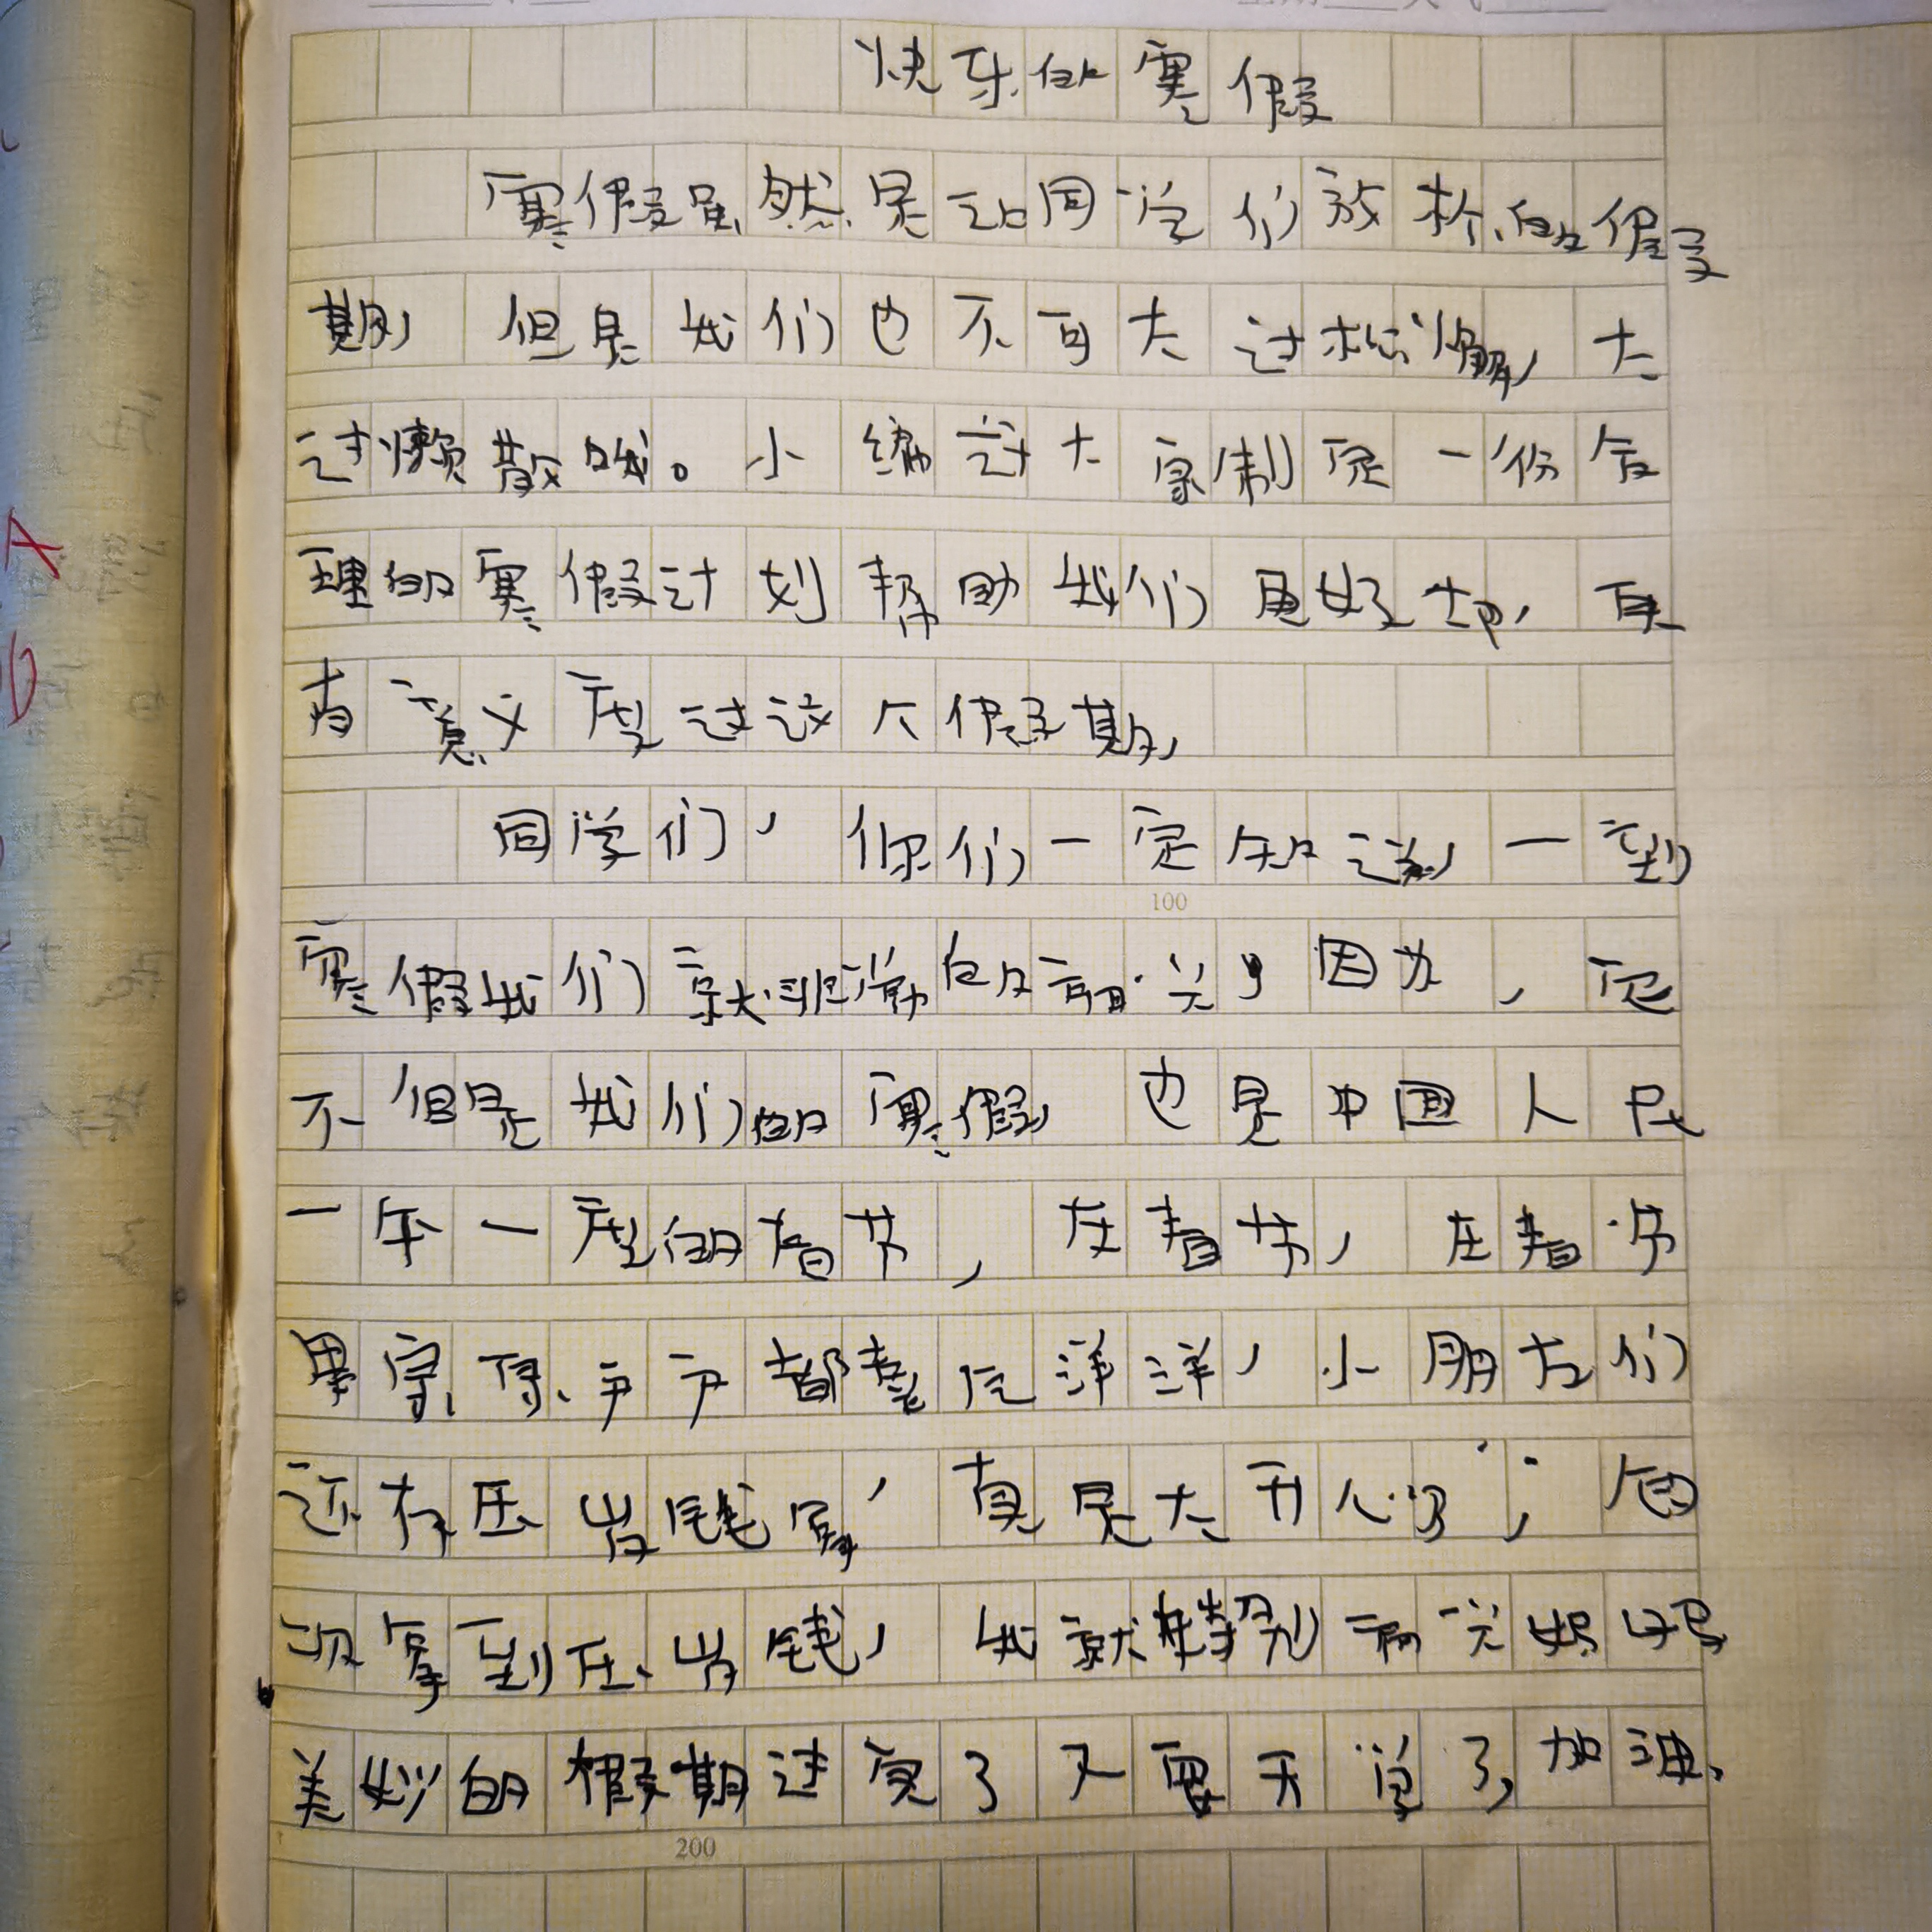 快乐的寒假
寒假虽然是让同学们放松的假
期, 但是我们也不可太过松懈, 太
过懒散哦。小编让大家制定一份合
理的寒假计划帮助我们更好地, 更
有意义度过这个假期,
同学们, 你们一定知道, 一到
寒假我们就非常的高兴, 因为, 它
不但是我们的寒假, 也是中国人民
一年一度的春节, 在春节, 在春节
里家家户户都喜气洋洋, 小朋友们
还有压岁钱拿, 真是太开心了, 每
次拿到压岁钱, 我就特别高兴
美妙的假期过完了又要开学了, 加油、
100
200